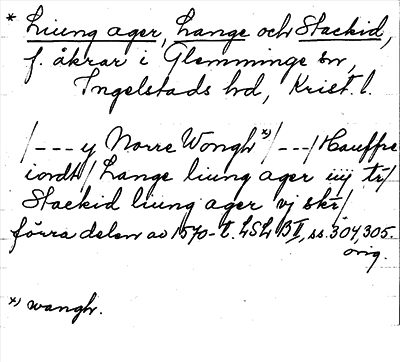 * Liung ager, Lange och Stackid,
f. åkrar i Glemminge sn,
Ingelstads hd, Krist. l.
/--- y Norre Wongh *) /---/ Hauffre
iordt / Lange liung ager iiij tr/
Stackid liung ager vj skr/
förra delen av 1570-t. LSL B II, ss. 304, 305.
orig.
*) wangh.